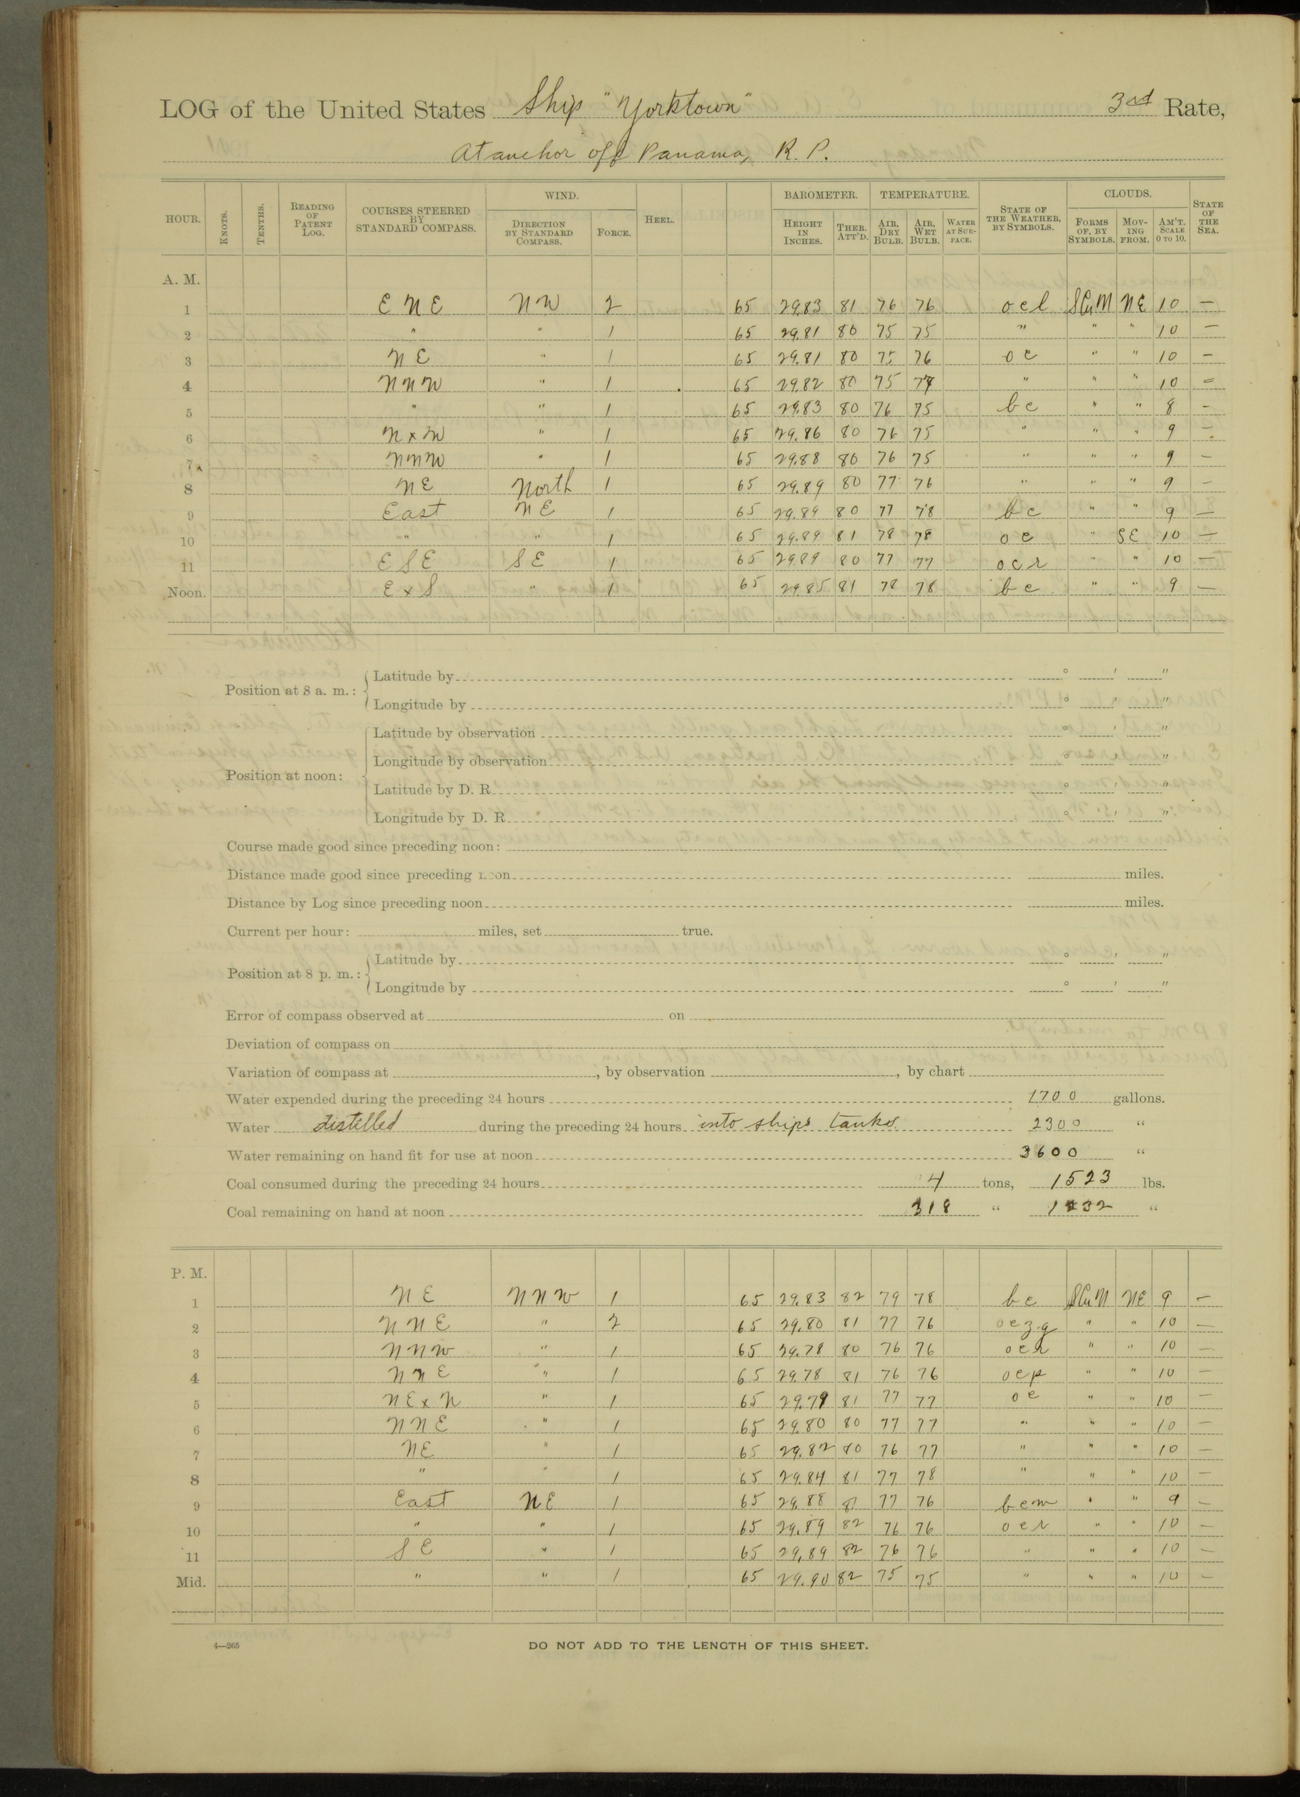 LOG of the United States Ship "Yorktown" 3rd Rate,
At anchor off Panama, R. P.
HOUR. KNOTS. TENTHS. READING OF PATENT LOG. COURSES STEERED BY STANDARD COMPASS. WIND. DIRECTION BY STANDARD COMPASS. FORCE. HEEL. BAROMETER. HEIGHT IN INCHES. THER. ATT'D. TEMPERATURE. AIR, DRY BULB. AIR, WET BULB. WATER AT SURFACE. STATE OF THE WEATHER, BY SYMBOLS. CLOUDS. FORMS OF, BY SYMBOLS. MOVING FROM. AM'T. SCALE 0 TO 10. STATE OF THE SEA.
A. M.
1 E N E N W 2 65 29.83 81 76 76 o c l S Cu N N E 10 —
2 " " 1 65 29.81 80 75 75 " " " 10 —
3 N E " 1 65 29.81 80 75 76 o c " " 10 —
4 N N W " 1 65 29.82 80 75 " " " 10 —
5 " " 1 65 29.83 80 76 75 b c " " 8 —
6 N x W " 1 65 29.86 80 76 75 " " " 9 —
7 N N W " 1 65 29.88 80 76 75 " " " 9 —
8 N E North 1 65 29.89 80 77 76 " " " 9 —
9 East N E 1 65 29.89 80 77 78 b c " " 9 —
10 " " 1 65 29.89 81 78 78 o c " S E 10 —
11 E S E S E 1 65 29.89 80 77 77 o c r " " 10 —
Noon. E x S " 1 65 29.85 81 78 78 b c " " 9 —
Position at 8 a. m.: Latitude by ° ' "
Longitude by ° ' "
Position at noon: Latitude by observation ° ' "
Longitude by observation ° ' "
Latitude by D. R. ° ' "
Longitude by D. R. ° ' "
Course made good since preceding noon:
Distance made good since preceding noon miles.
Distance by Log since preceding noon miles.
Current per hour: miles, set true.
Position at 8 p. m.: Latitude by ° ' "
Longitude by ° ' "
Error of compass observed at on
Deviation of compass on
Variation of compass at , by observation , by chart
Water expended during the preceding 24 hours 1700 gallons.
Water distilled during the preceding 24 hours into ships tanks 2300 "
Water remaining on hand fit for use at noon 3600 "
Coal consumed during the preceding 24 hours 4 tons, 1523 lbs.
Coal remaining on hand at noon 318 " "
P. M.
1 N E N N W 1 65 29.83 82 79 78 b c S Cu N N E 9 —
2 N N E " 2 65 29.80 81 77 76 o c z q " " 10 —
3 N N W " 1 65 29.78 80 76 76 o c r " " 10 —
4 N N E " 1 65 29.78 81 76 76 o c p " " 10 —
5 N E x N " 1 65 29.79 81 77 77 o c " " 10 —
6 N N E " 1 65 29.80 80 77 77 " " " 10 —
7 N E " 1 65 29.82 80 76 77 " " " 10 —
8 " " 1 65 29.84 81 77 78 " " " 10 —
9 East N E 1 65 29.88 81 77 76 b c m " " 9 —
10 " " 1 65 29.89 82 76 76 o c r " " 10 —
11 S E " 1 65 29.89 82 76 76 " " " 10 —
Mid. " " 1 65 29.90 82 75 75 " " " 10 —
4—265 DO NOT ADD TO THE LENGTH OF THIS SHEET.